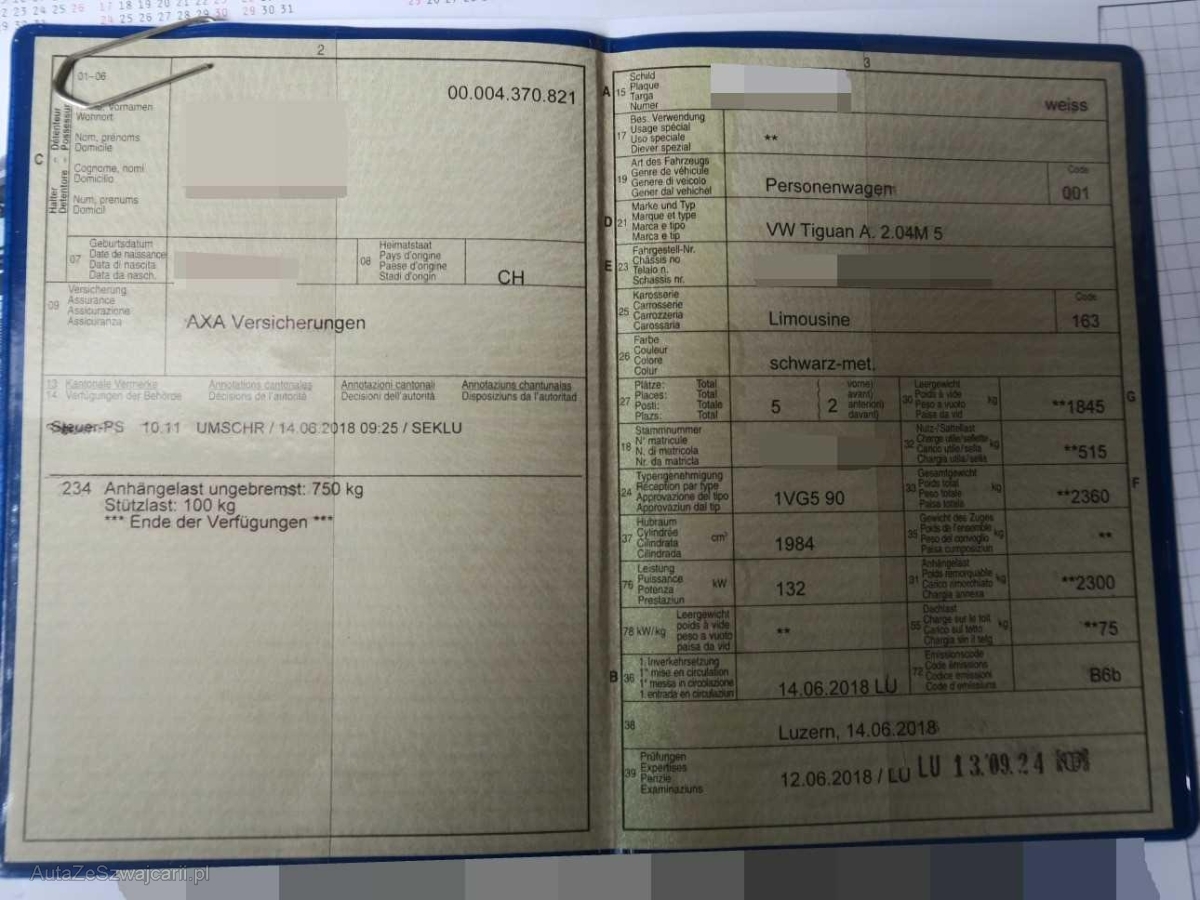 2
01-06
Name, Vornamen
Wohnort
Nom, prénoms
Domicile
Cognome, nomi
Domicilio
Num, prenums
Domicil
C
Halter - Détenteur
Detentore - Possessur
00.004.370.821
07
Geburtsdatum
Date de naissance
Data di nascita
Data da nasch.
08
Heimatstaat
Pays d'origine
Paese d'origine
Stadi d'origin
CH
09
Versicherung
Assurance
Assicurazione
Assicuranza
AXA Versicherungen
13 Kantonale Vermerke Annotations cantonales Annotazioni cantonali Annotaziuns chantunalas
14 Verfügungen der Behörde Décisions de l'autorité Decisioni dell'autorità Disposiziuns da l'autoritad
Steuer-PS 10.11 UMSCHR / 14.06.2018 09:25 / SEKLU
234 Anhängelast ungebremst: 750 kg
Stützlast: 100 kg
*** Ende der Verfügungen ***
3
A 15
Schild
Plaque
Targa
Numer
weiss
17
Bes. Verwendung
Usage spécial
Uso speciale
Diever spezial
**
19
Art des Fahrzeugs
Genre de véhicule
Genere di veicolo
Gener dal vehichel
Personenwagen
Code
001
D 21
Marke und Typ
Marque et type
Marca e tipo
Marca e tip
VW Tiguan A. 2.04M 5
E 23
Fahrgestell-Nr.
Châssis no
Telaio n.
Schassis nr.
25
Karosserie
Carrosserie
Carrozzeria
Carossaria
Limousine
Code
163
26
Farbe
Couleur
Colore
Colur
schwarz-met.
27
Plätze: Total
Places: Total
Posti: Totale
Plazs: Total
5
( vorne)
( avant)
anteriori)
davant)
2
30
Leergewicht
Poids à vide
Peso a vuoto
Paisa da vid
kg
**1845
G
18
Stammnummer
N° matricule
N. di matricola
Nr. da matricla
32
Nutz-/Sattellast
Charge utile/sellette
Carico utile/sella
Chargia utila/sella
kg
**515
24
Typengenehmigung
Réception par type
Approvazione del tipo
Approvaziun dal tip
1VG5 90
33
Gesamtgewicht
Poids total
Peso totale
Paisa totala
kg
**2360
F
37
Hubraum
Cylindrée
Cilindrata
Cilindrada
cm³
1984
35
Gewicht des Zuges
Poids de l'ensemble
Peso del convoglio
Paisa cumposiziun
kg
**
76
Leistung
Puissance
Potenza
Prestaziun
kW
132
31
Anhängelast
Poids remorquable
Carico rimorchiato
Chargia annexa
kg
**2300
78 kW/kg
Leergewicht
poids à vide
peso a vuoto
paisa da vid
**
55
Dachlast
Charge sur le toit
Carico sul tetto
Chargia sin il tetg
kg
**75
B 36
1. Inverkehrsetzung
1re mise en circulation
1a messa in circolazione
1. entrada en circulaziun
14.06.2018 LU
72
Emissionscode
Code émissions
Codice emissioni
Code d'emissiuns
B6b
38
Luzern, 14.06.2018
39
Prüfungen
Expertises
Perizie
Examinaziuns
12.06.2018 / LU LU 13.09.24
AutaZeSzwajcarii.pl